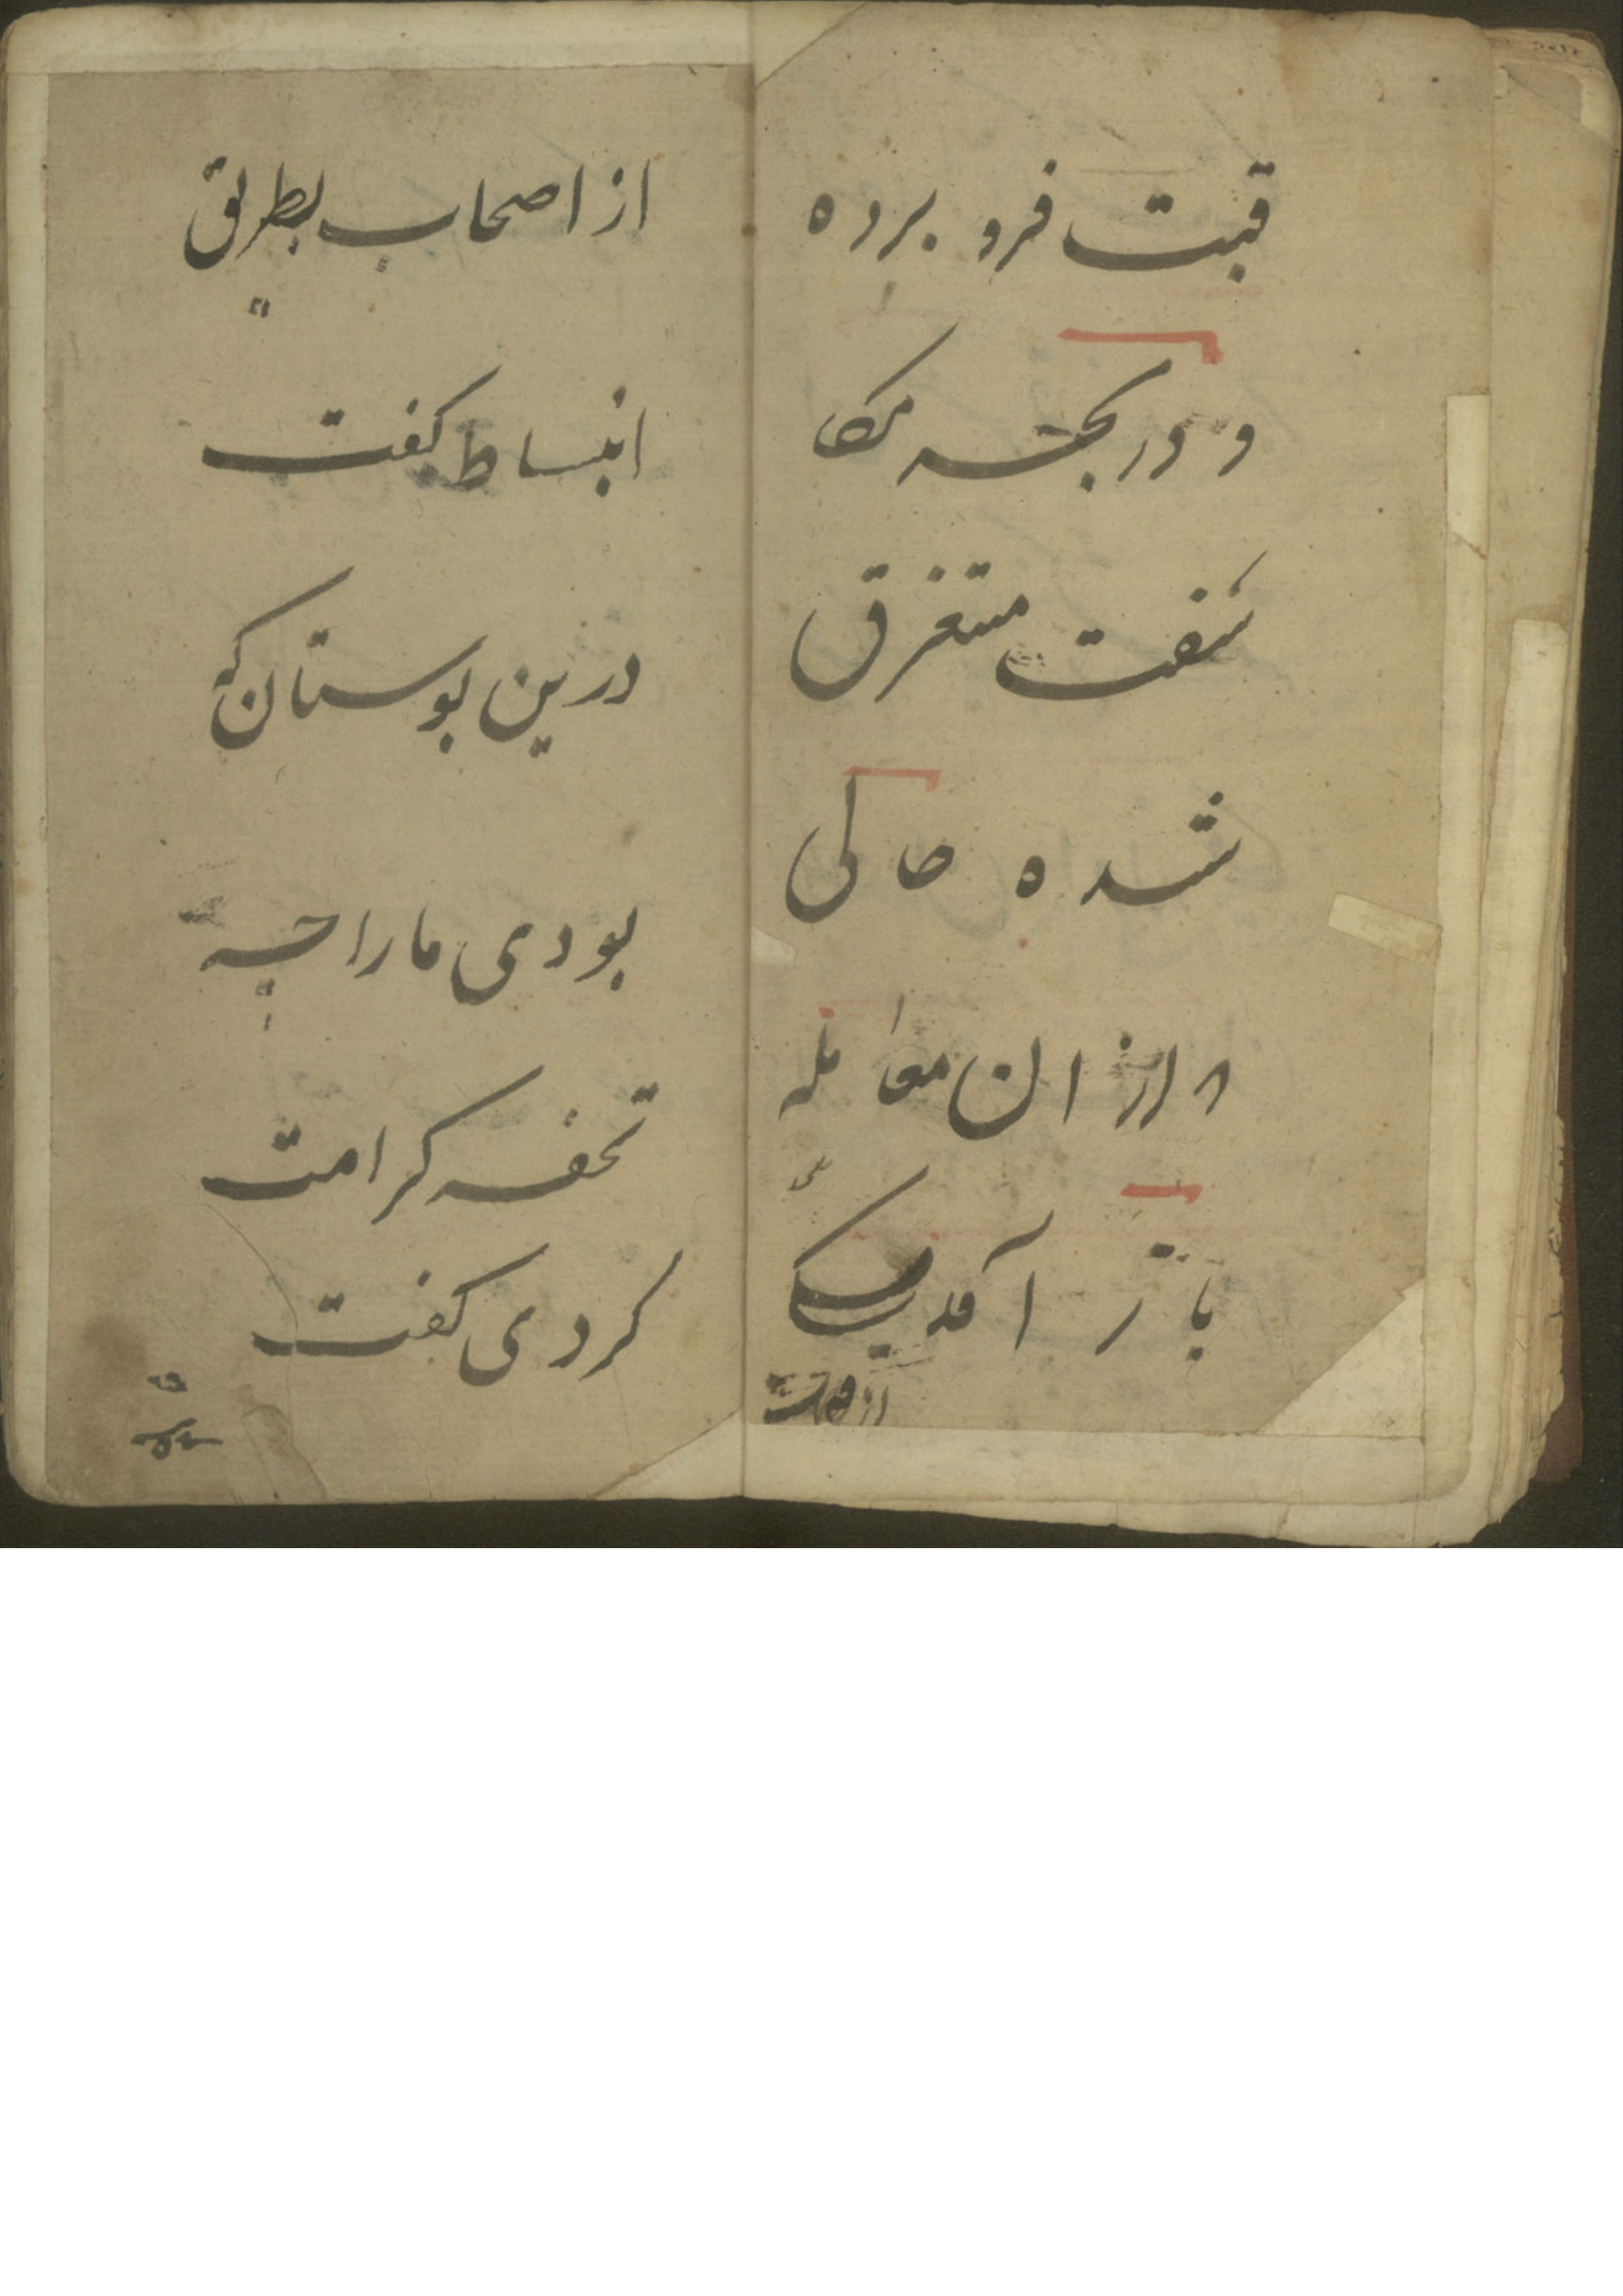 قبت فرو برده
و در بحسه مکا
شفت مستغرق
شده حالی
ازان معامله
باز آمد یکی
از اصحاب بطریق
انبساط کفت
درین بوستان که
بودی ما را چه
تحفه کرامت
کردی کفت